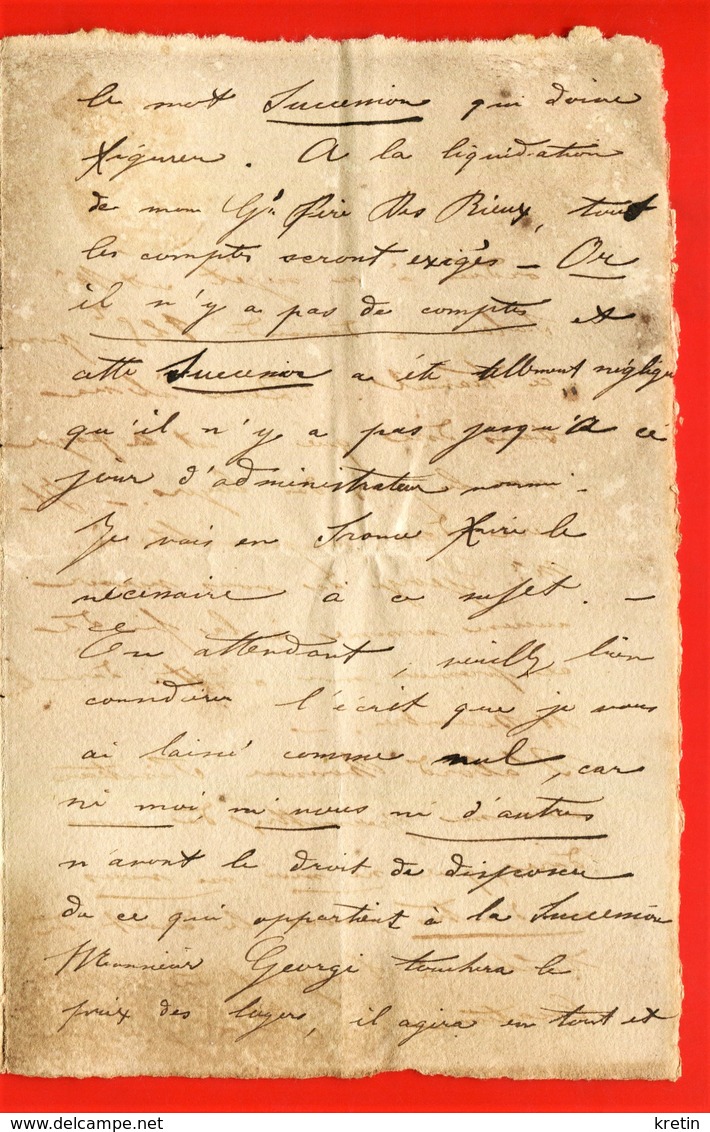 le mot Succession qui doive
figurer. A la liquidation
de mon Gd Père Des Rieux, tout
les comptes seront exigés — Or
il n'y a pas de comptes et
cette Succession a été tellement négligée
qu'il n'y a pas jusqu'à ce
jour d'administrateur nommé.
Je vais en France faire le
nécessaire à ce sujet. —
En attendant, veuillez bien
considérer l'écrit que je vous
ai laissé comme nul, car
ni moi, ni vous ni d'autres
n'avont le droit de disposer
de ce qui appartient à la Succession
Monsieur Georgi touchera le
prix des loyers, il agira en tout et
kretin